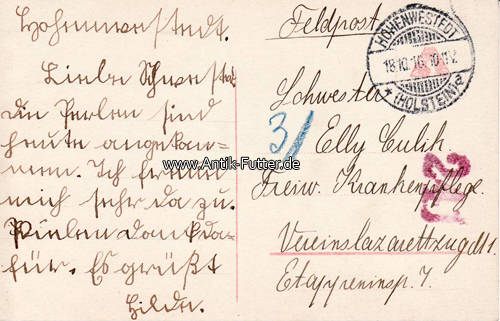 Hohenwestedt.
Liebe Schwester
die Perlen sind
heute angekom-
men. Ich freue
mich sehr da zu.
Vielen Dank da-
für. Es grüßt
Hilde.
Feldpost.
HOHENWESTEDT
18.10.16. 10-11 V.
* (HOLSTEIN) a
3/
Schwester
Elly Culik.
Freiw. Krankenpflege.
Vereinslazarettzug
Etappeninsp. 7.
www.Antik-Futter.de